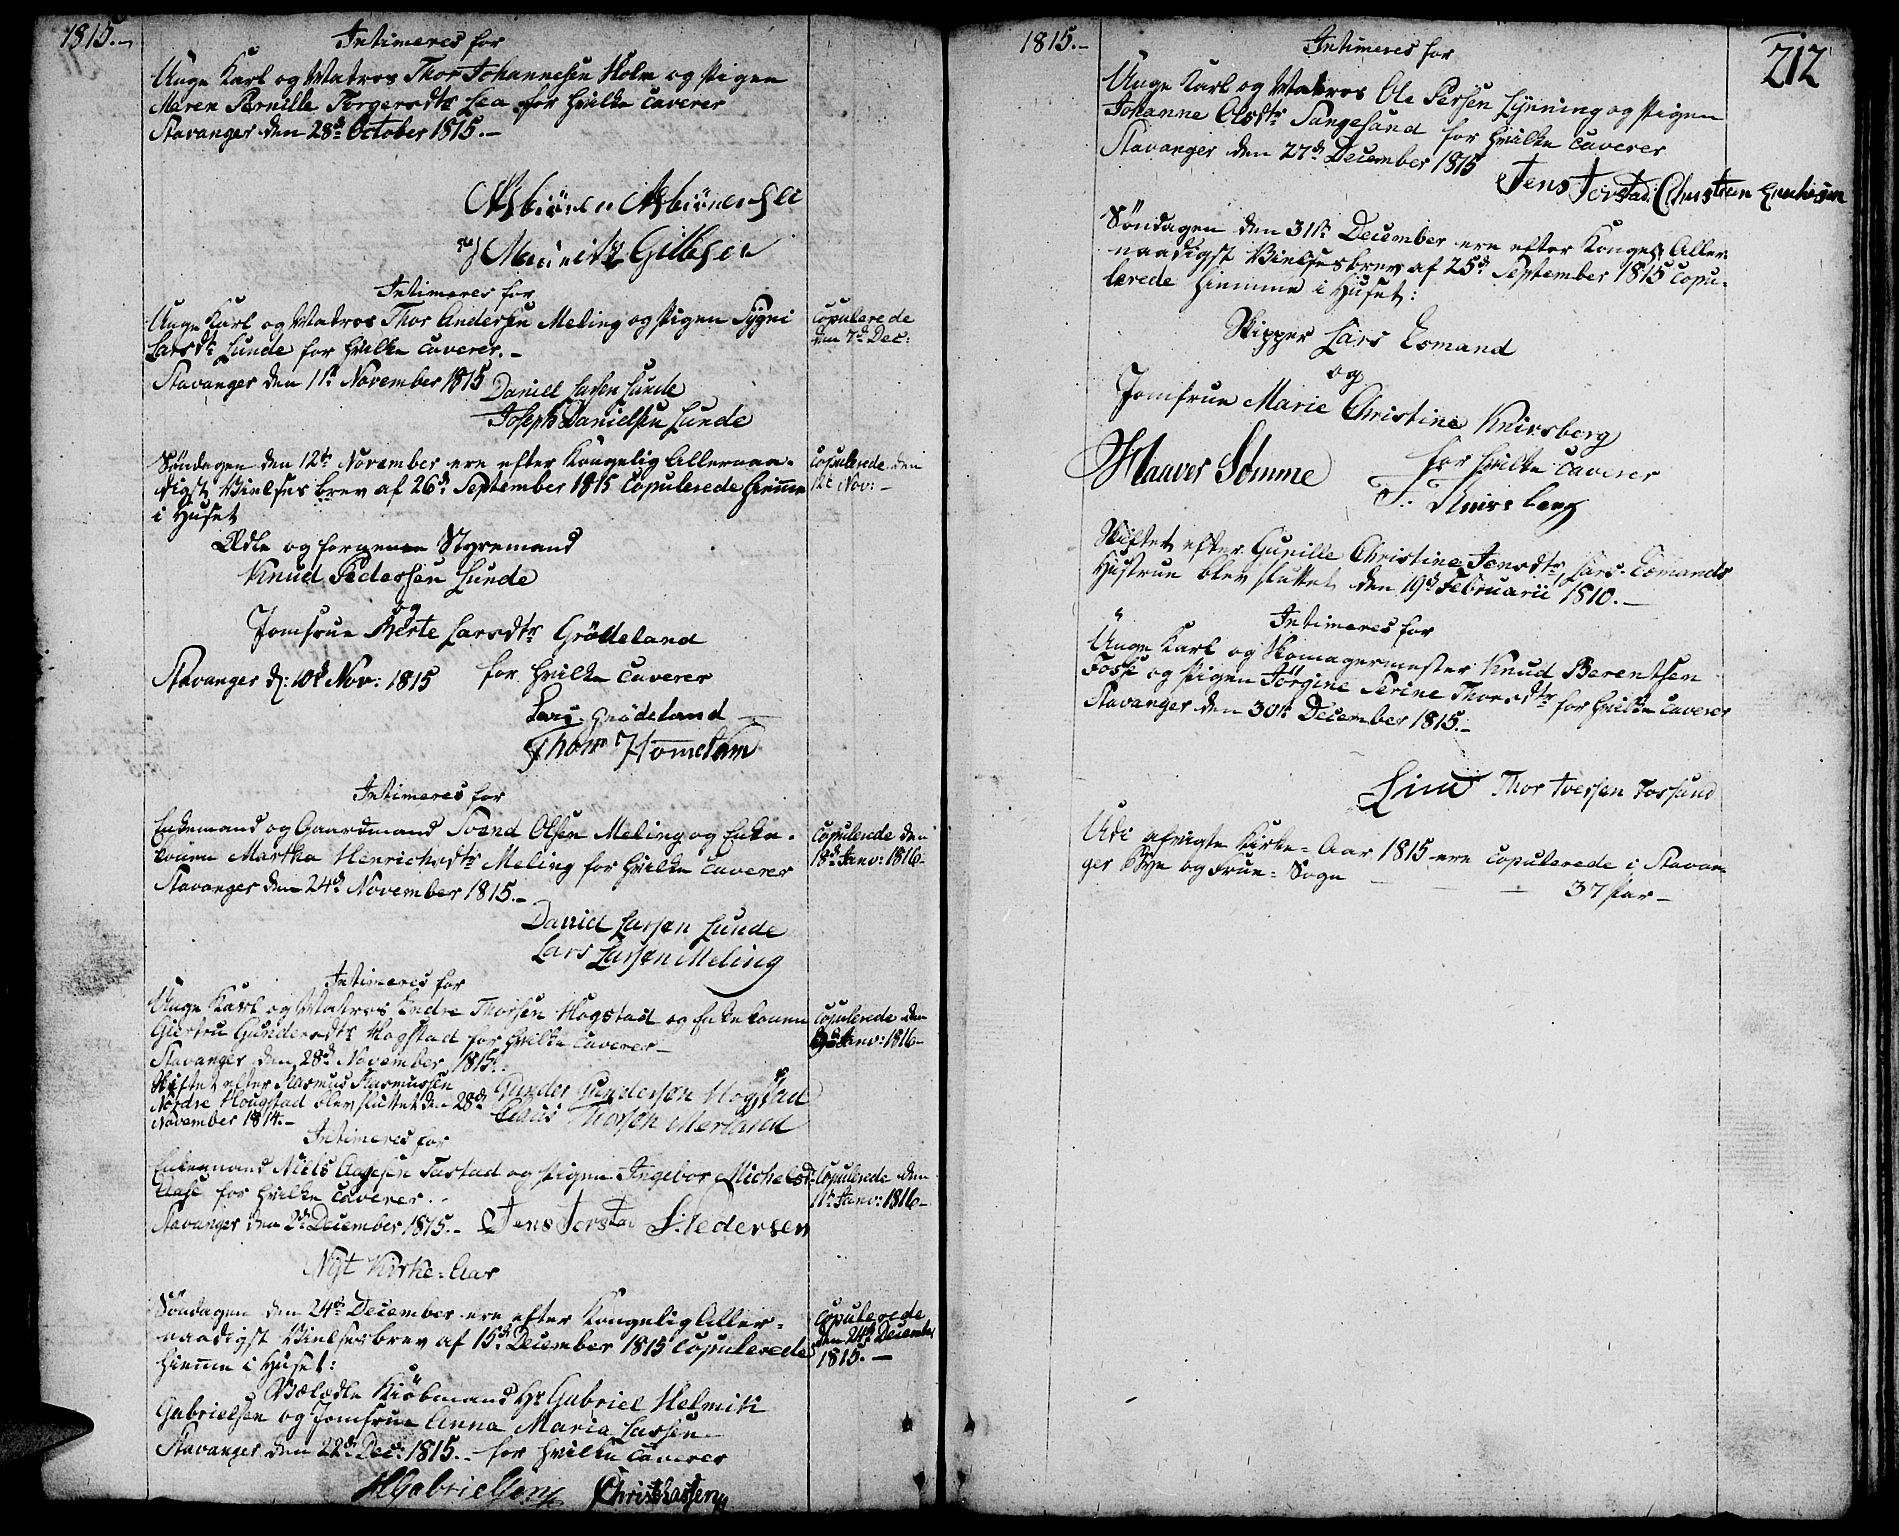 1815.-
Intimeres for
Unge Karl og Matros Thor Johannesen Holm og Pigen
Maren Pernille Torgersdtr Lea for hvilke caverer
Stavanger den 28de October 1815.-
Asbiörn Asbiörnsen
Gilbsen
Intimeres for
Unge Karl og Matros Thor Andersen Meling og Pigen Sygni
Larsdtr Lunde for hvilke caverer.-
Stavanger den 11te November 1815
Daniel Larsen Lunde
Joseph Danielsen Lunde
copulerede
den 7de Dec:
Söndagen den 12te November ere efter Kongelig Allernaa-
digst Vielsesbrev af 26de September 1815 copulerede hiemme
i Huset
Ædle og fornemme Styremand
Knud Pedersen Lunde
og
Jomfrue Berte Larsdtr Grödeland
Stavanger d: 10de Nov: 1815 for hvilke caverer
Lars Grödeland
Thom
copulerede den
12te Nov:-
Intimeres for
Enkemand og Gaardmand Svend Olsen Meling og Enke-
konen Martha Henrichsdtr Meling for hvilke caverer
Stavanger den 24de November 1815.-
Daniel Larsen Lunde
Lars Larsen Meling
copulerede den
18de Janv: 1816-
Intimeres for
Unge Karl og Matros Endre Thorsen Hogstad og Enkekonen
Giertru Gundersdtr Hogstad for hvilke caverer-
Stavanger den 28de November 1815.-
Skiftet efter Rasmus Rasmussen
Nordre Hougstad blev sluttet den 28de
November 1814.-
Gunder Gundersen Hogstad
Claus Thorsen
copulerede den
Janv: 1816-
Intimeres for
Enkemand Niels Aagesen Tastad og Pigen Ingebor Michelsd:
Aase for hvilke caverer.
Stavanger den 2de December 1815.- Jens Torstad Pedersen
copulerede den
11te Janv: 1816-
Nyt Kirke-Aar
Söndagen den 24de December ere efter Kongelig Aller-
naadigst Vielsesbrev af 15de December 1815 copulerede
hiemme i Huset:
Velædle Kiöbmand Hr Gabriel Helmik
Gabrielsen og Jomfrue Anna Maria Larsen
Stavanger den 22de Dec: 1815.- for hvilke caverer
HGabrielsen
copulerede
den 24de December
1815.-
1815.-
212
Intimeres for
Unge Karl og Matros Ole Persen Lynning og Pigen
Johanne Olsdtr Tangesund for hvilke caverer
Stavanger den 27de December 1815
Jens Torstad. Christian
Söndagen den 31te December ere efter Konges Aller
naadigst Vielsesbrev af 25de September 1815 copu-
lerede hiemme i Huset:
Skipper Lars Esmand
og
Jomfrue Marie Christine Knirsberg
for hvilke caverer
Sömme
F. Knirsberg
Skiftet efter Gunille Christine Jensdtr, Lars Esmands
Hustrue blev sluttet den 19de Februarii 1810.-
Intimeres for
Unge Karl og Skomagermester Knud Berentsen
Fosse og Pigen Jörgine Serine Thorsdtr for hvilke caverer
Stavanger den 30te December 1815.-
Lind Thor Iversen Tossund
Udi afvigte Kirke-Aar 1815 ere copulerede i Stavan-
ger Bye og Frue-Sogn - - - 37 Par-